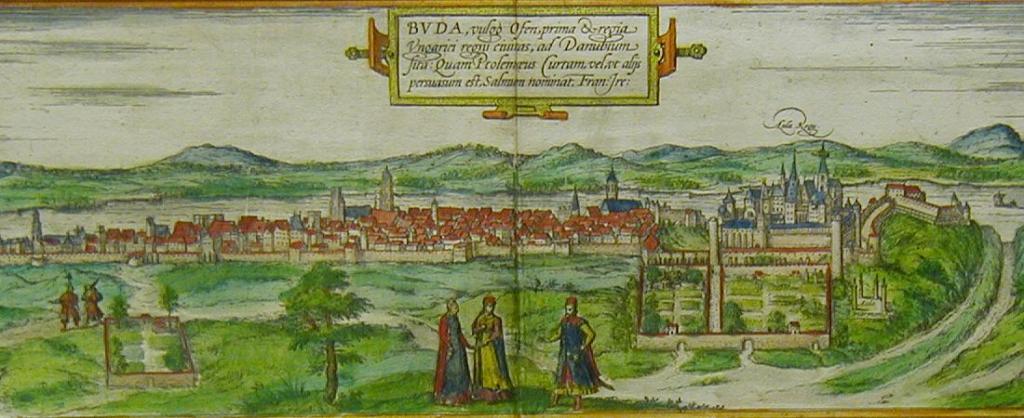 BVDA, vulgo Ofen, prima & regia
Vngarici regni ciuitas, ad Danubium
sita: Quam Ptolemæus Curtam, vel, vt alijs
persuasum est, Salinum nominat. Fran: Ire:
Sala Regia